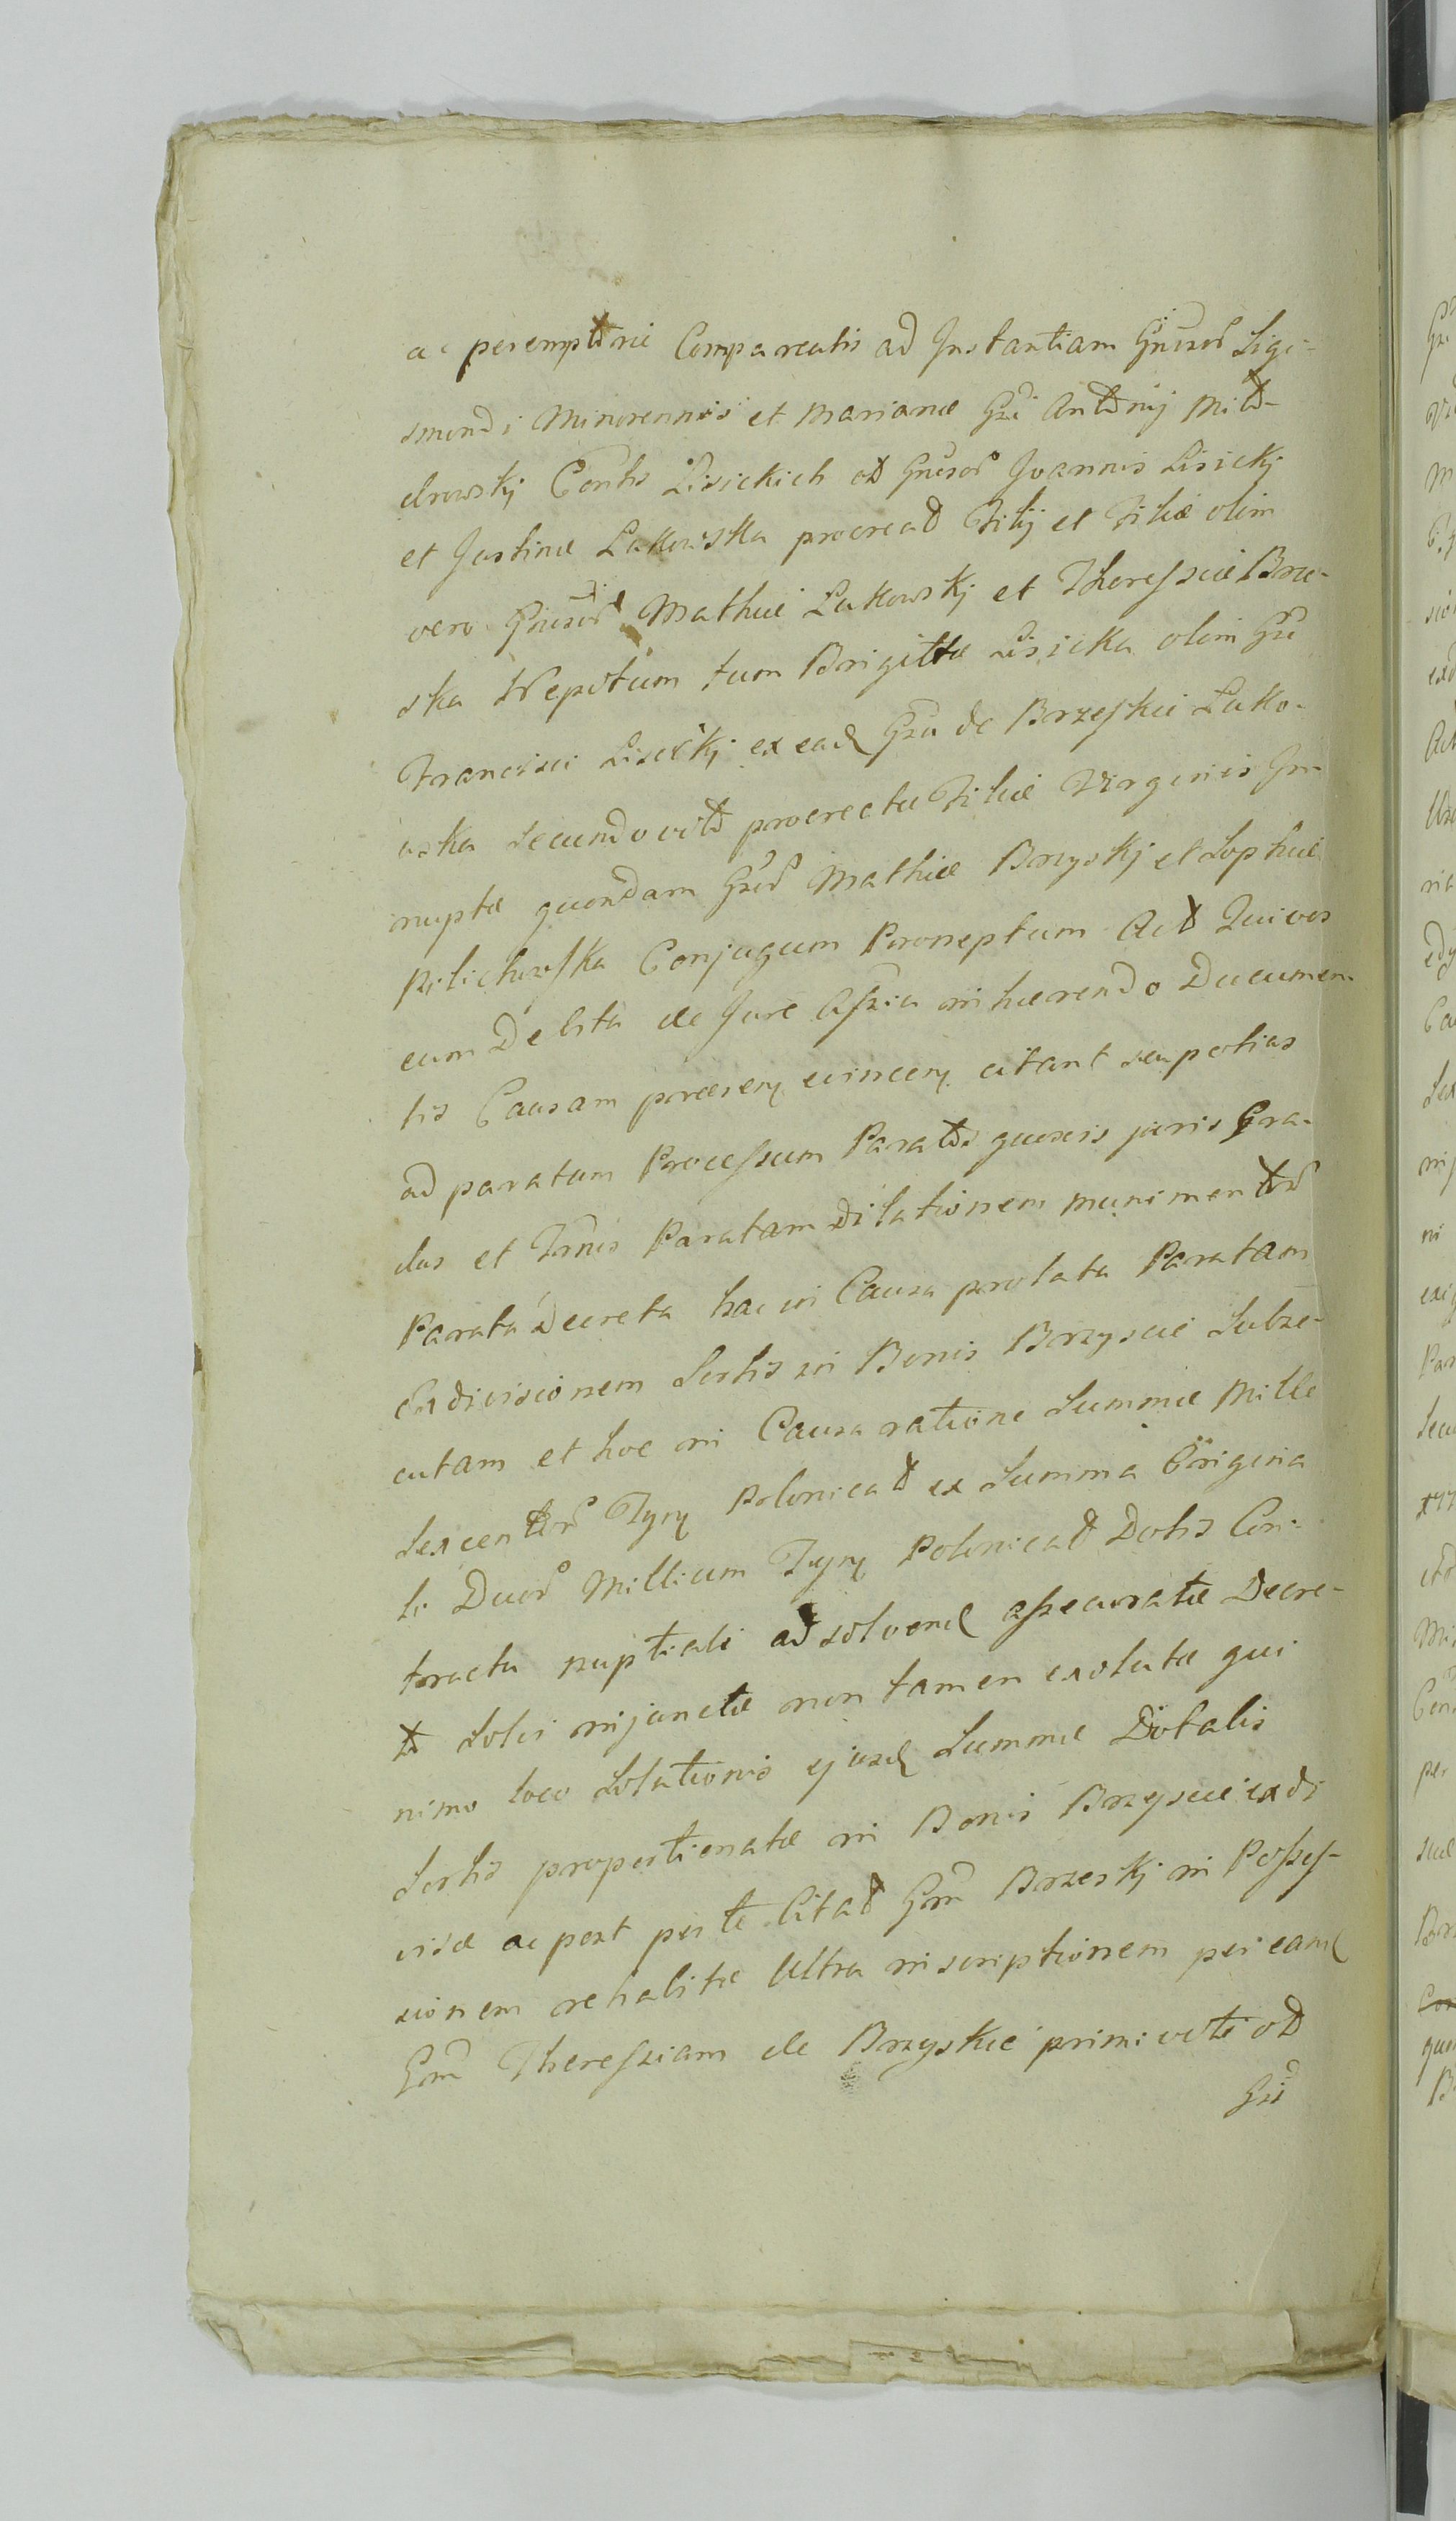 ac peremptorie Compareatis ad Instantiam Gnrsor Sigi-
smundi Minorennis et Marianæ Gsi Antonij
Contis Lisickich od Gnrsor Joannis Lisickj
et Justinæ Lukowska procreat Filij et Filiæ olim
vero Gnrsor Mathiæ Lukowskj et Theressiæ Brze-
ska Nepotum tum Brigittæ Lisicka olim Gsi
Francisci Lisickj ex ead Gsa de Brzeskie Luko-
wska secundo voto procreatæ Filiæ Virginis In-
nuptæ quondam Gsor Mathiæ Brzyskj et Sophiæ
Conjugum Proneptum Act Qui vos
cum Debita de Jure Assia inhærendo Documen-
tis Causam præsen evincen citant seu potius
ad paratum Processum Paratos quosvis juris Gra-
dus et Trnis Paratam Dilationem munimentor
Parata Decreta hac in Causa prolata Paratam
Exdivisionem Sortis in Bonis Brzyscie Subse-
cutam et hoc in Causa ratione Summæ Mille
Sexcentor Fyn Polonicat ex Summa Origina
li Duor Millium Fyn Polonicat Dotis Con-
tractu nuptiali ad solvend assecuratæ Decre-
to Solvi injunctæ non tamen exolutæ qui
nimo loco Solutionis ejusd Summæ Dotalis
Sortis proportionatæ in Bonis Brzyscie exdi
visæ ac post per te Citat Gm Brzeskj in Posses-
sionem rehabitæ Ultra inscriptionem per eand
Gm Theressiam de Brzyskie primi voti od
Gsi